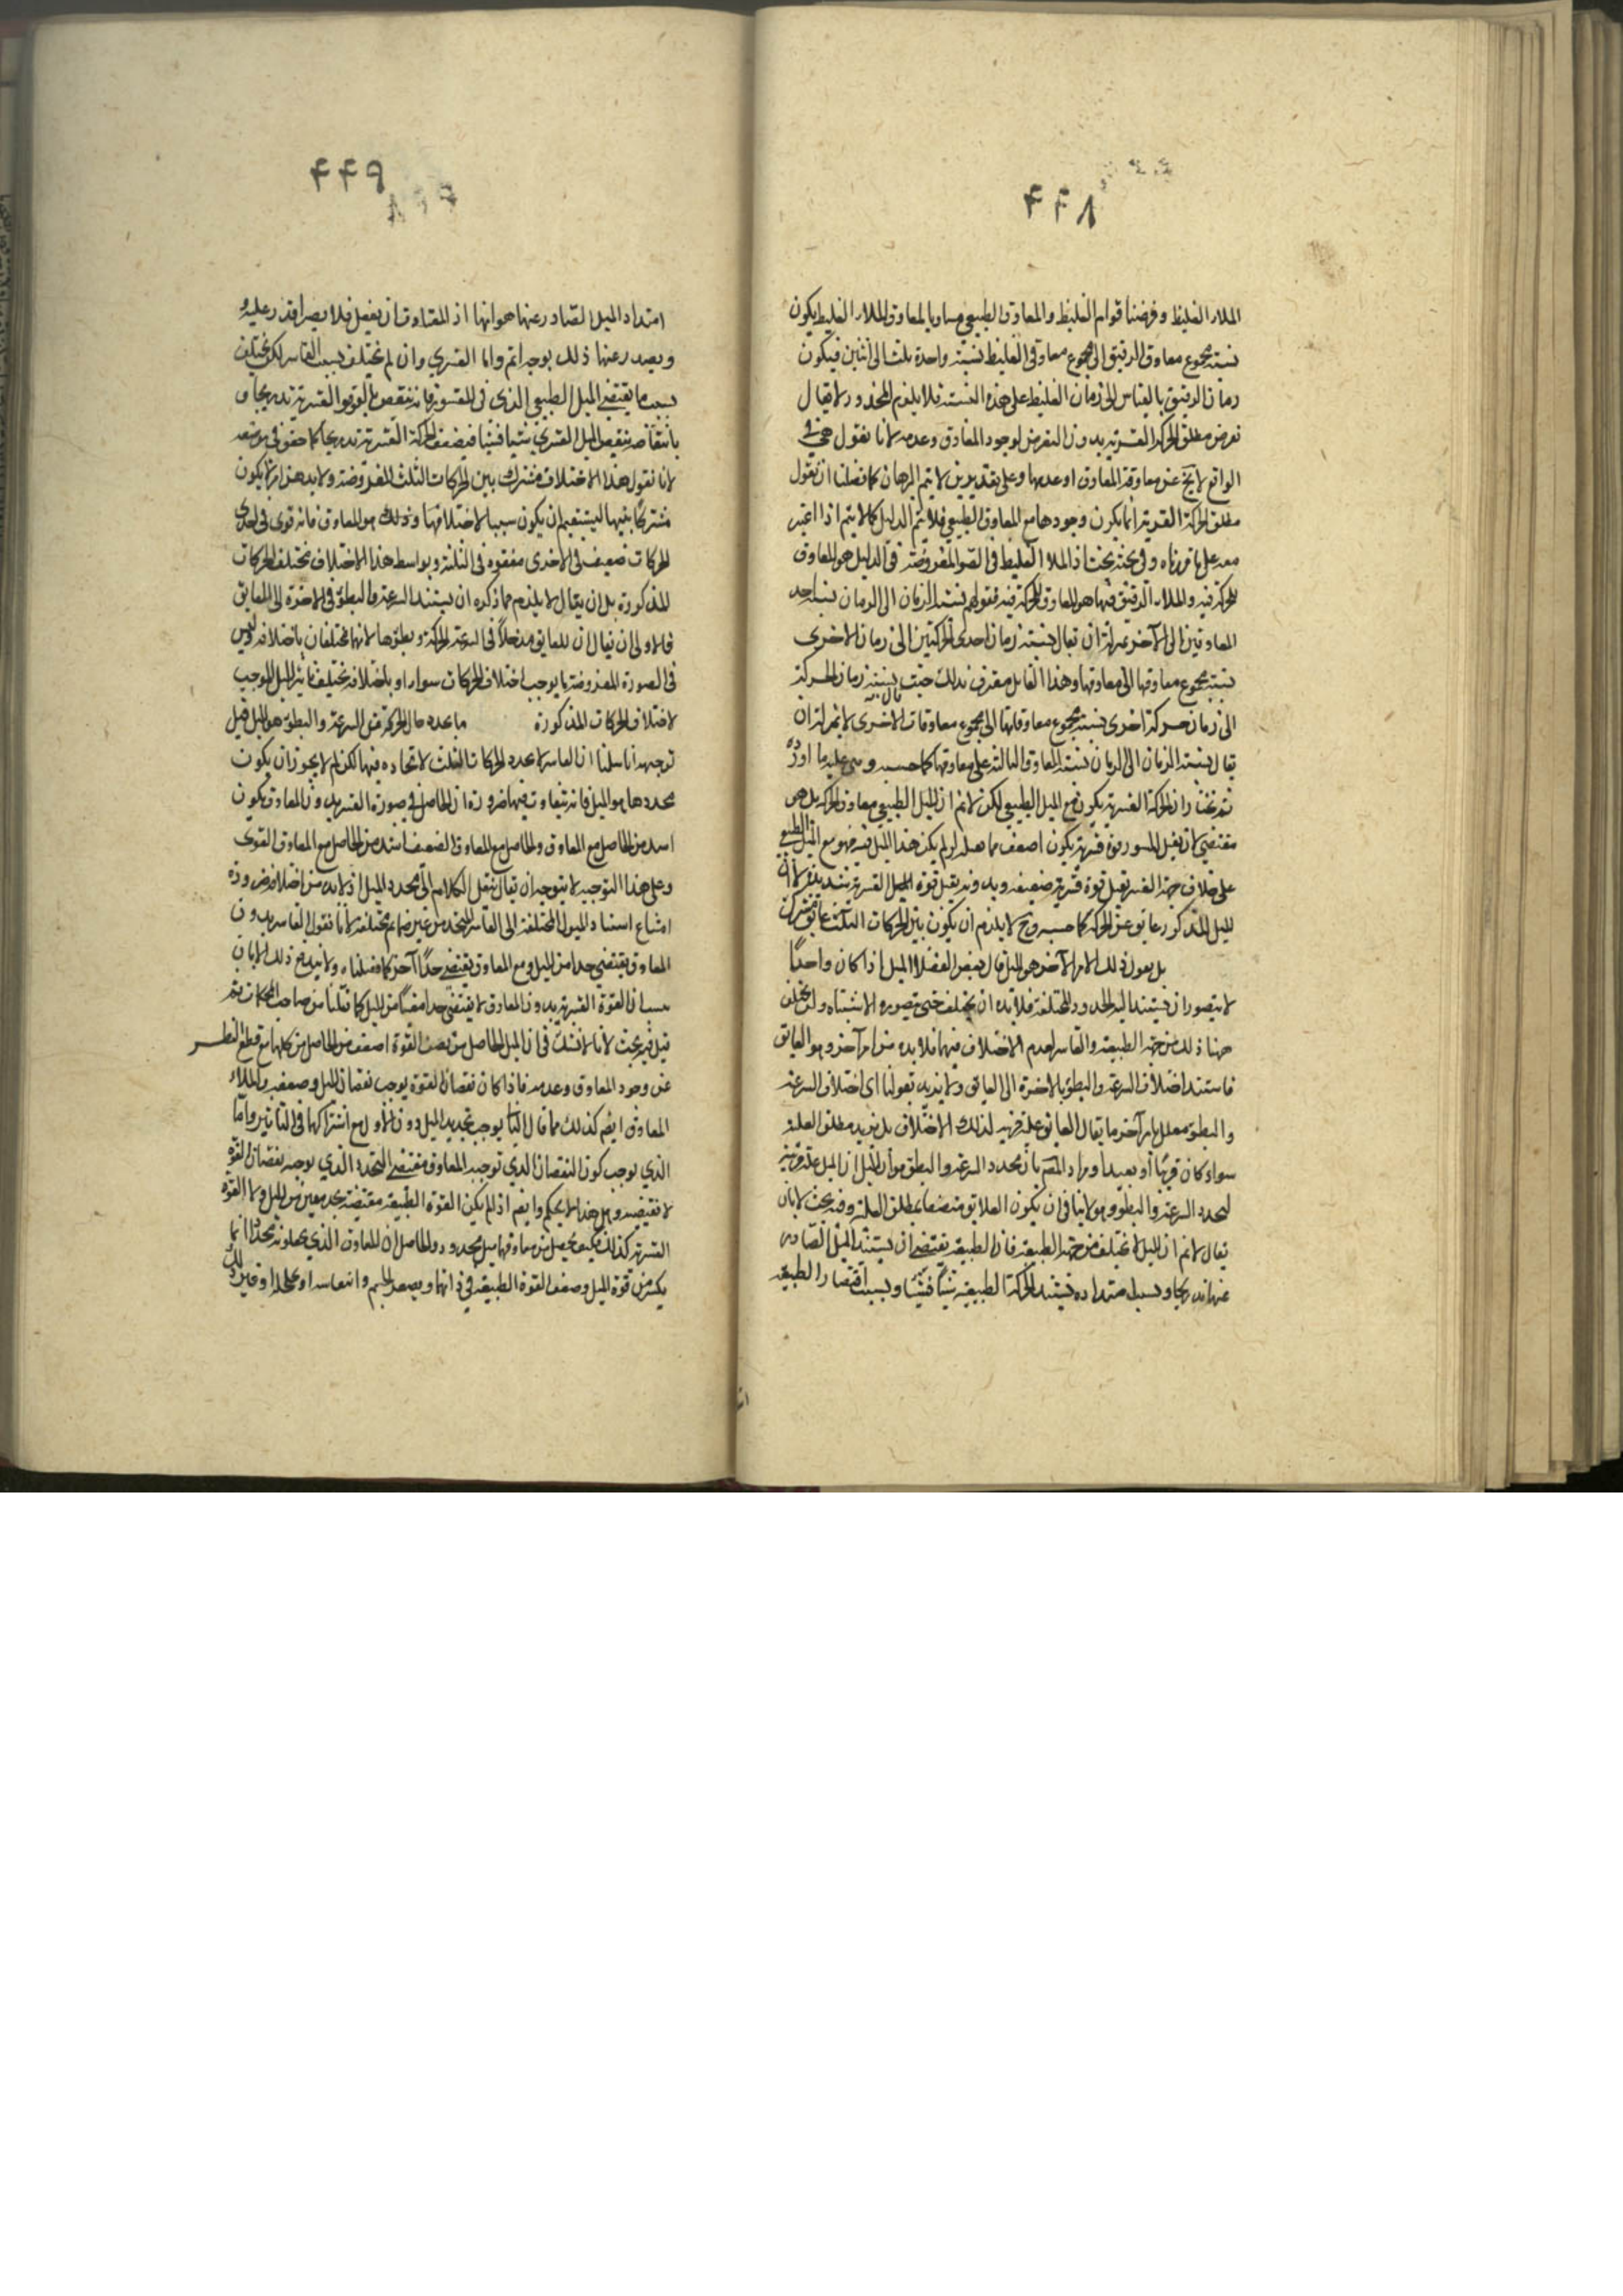 ۴۴۸
الملاء الغليظ وفرضنا قوام الغليظ والمعاوق الطبيعي مساويا لمعاوق الملاء الغليظ يكون
نسبة مجموع معاوق الرقيق الى مجموع معاوق الغليظ نسبة واحدة ثلث الى اثنين فيكون
زمان الرقيق بالقياس الى زمان الغليظ على هذه النسبة فلا يلزم المحذور لا يقال
نفرض مطلق الحركة القسرية بدون التعرض لوجود المعاوق وعدمه لانا نقول هي في
الواقع لا يخ عن معاوقة المعاوق او عدمها وعلى تقديرين لا يتم البرهان كما فصلنا ان نقول
مطلق الحركة القسرية انما يكون وجودها مع المعاوق الطبيعي فلا يتم الدليل كما لا يتم اذا اعتبر
معه على ما قررناه وفي بحثه بحث اذ الملاء الغليظ في الصور المفروضة في الدليل هو المعاوق
للحركة فيه والملاء الرقيق فيها هو المعاوق للحركة فيه فقولهم نسبة الزمان الى الزمان نسبة احد
المعاوقين الى الآخر بمنزلة ان يقال نسبة زمان احدى الحركتين الى زمان الاخرى
نسبة مجموع معاوقها الى معاوقها وهذا القائل معترف بذلك حيث قال نسبة زمان الحركة
الى زمان حركة اخرى نسبة مجموع معاوقاتها الى مجموع معاوقات الاخرى لا بمنزلة ان
يقال نسبة الزمان الى الزمان نسبة المعاوق الثالثة على معاوقها كما حسبه وبنى عليه ما اورده
ثم نختار ان الحركة القسرية يكون مع الميل الطبيعي لكن لا نم ان الميل الطبيعي معاوق للحركة بل هي
مقتضى لان يقبل المقسور قوة قسرية يكون اضعف مما قبله لو لم يكن هذا الميل فيه فهو مع الميل الطبيعي
على خلاف جهة القسر يقبل قوة قسرية ضعيفة وبدونه يقبل قوة الميل القسرية شديدة لا ان
الميل المذكور عائق عن الحركة كما حسبه وح لا يلزم ان يكون بين الحركات الثلث عائق مشترك
بل يعول ذلك الامر الآخر هو الميل قال بعض الفضلاء الميل اذا كان واحدًا
لا يتصور ان يستند اليه الحدود المختلفة فلا بد ان يختلف حتى يتصور الاستناد ولا يختلف
ههنا ذلك من جهة الطبيعة والقاسر لعدم الاختلاف فيهما فلا بد من امر آخر وهو العائق
فاستند اختلاف السرعة والبطؤ بالاخرة الى العائق ولا نريد بقولنا اى اختلاف السرعة
والبطؤ معلل بامر آخر ما يقال العائق علة قريبة لذلك الاختلاف بل نريد مطلق العلة
سواء كان قريبًا أو بعيدا ومراد المصم بان محدد السرعة والبطؤ هو الميل ان الميل علة قريبة
لتحدد السرعة والبطؤ وهو لا ينافي ان يكون العلائق متصفا بمطلق العلة وفيه بحث لا بان
يقال لا نم ان الميل لا يختلف من جهة الطبيعة فان الطبيعة يقتضي ان يستند الميل الصادر
عنها تدريجا وبسبيل امتداده فيشتد الحركة الطبيعية شيئًا فشيئًا وبسبب اقتضاء الطبيعة
۴۴۹
امتداد الميل الصادر عنها هو انها اذ المعاوق ان يفعل فلا يصير اقدر عليه و
ويصدر عنها ذلك بوجه اتم واما القسري وان لم يختلف بسبب القاسر لكن يختلف
بسبب ما يقتضي الميل الطبيعي الذي في المقسور فانه ينتقص القوة القسرية تدريجا و
بانتقاصه ينتقص الميل القسري شيئا فشيئا فيضعف الحركة القسرية تدريجا كما حقق في موضعه
لانا نقول هذا الاختلاف مشترك بين الحركات الثلث المفروضة ولا بد من امر لا يكون
مشتركًا بينها ليستقيم ان يكون سببا لاختلافها وذلك هو المعاوق فانه قوى في احدى
الحركات ضعيف في الاخرى مفقود في الثلثة وبواسطة هذا الاختلاف تختلف الحركات
المذكورة بل ان يقال لا يلزم مما ذكره ان يستند السرعة والبطؤ في الاخرة الى العائق
فالاولى ان يقال ان للعائق مدخلًا في السرعة الحركة وبطؤها لانهما مختلفان باختلافه وليس
في الصورة المفروضة ما يوجب اختلاف الحركات سواه او باختلافه يختلف تأثير الميل الموجب
لاختلاف الحركات المذكورة ما عدد حال الحركة من السرعة والبطؤ هو الميل قيل
توجيهه انا سلمنا ان القاسر لا يحدد الحركات الثلث لاتحاده فيها لكن لم لا يجوز ان يكون
محددها هو الميل فانه يتفاوت فيها ضرورة ان الحاصل في صورة القسر بدون المعاوق يكون
اشد من الحاصل مع المعاوق والحاصل مع المعاوق الضعيف اشد من الحاصل مع المعاوق القوى
وعلى هذا التوجيه لا يتوجه ان يقال ننقل الكلام الى محدد الميل اذ لا بد من اختلافه ضرورة
امتناع استناد الميول المختلفة الى القاسر المتحد من غير ضمائم مختلفة لأنا نقول القاسر بدون
المعاوق يقتضي حدا من الميل ومع المعاوق يقتضي حدًا آخر كما فصلناه ولا يندفع ذلك الا بان
ان القوة القسرية بدون المعاوق لا يقتضي حدا معينًا من الميل كما نقلنا من صاحب المحاكمات ثم
قيل فيه بحث لانا لا نشك في ان الميل الحاصل من نصف القوة اضعف من الحاصل من كلها مع قطع النظر
عن وجود المعاوق وعدمه فاذا كان نقصان القوة يوجب نقصان الميل وضعفه والملاء
المعاوق ايضم كذلك مما قال الثاني يوجب تحديد الميل دون الأول مع اشتراكهما في التاثير واما
الذي يوجب كون النقصان الذي توجبه المعاوق مقتضى التحدد الذي يوجبه نقصان القوة
لا نقتضيه وهل هذا الا تحكم وايضم اذ لم يكن القوة الطبيعة مقتضية بحد معين من الميل ولا القوة
القسرية كذلك فكيف يحصل من معاوقها ميل محدود والحاصل ان المعاوق الذي يجعلونه محددا انما
يكسر من قوة الميل وضعف القوة الطبيعية في ذاتها